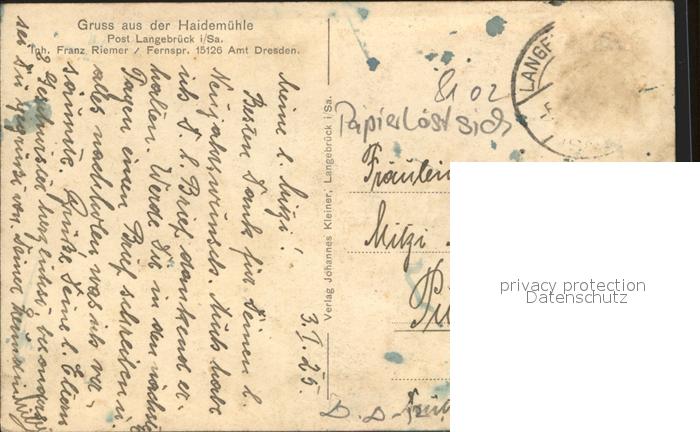 Gruss aus der Haidemühle
Post Langebrück i/Sa.
Inh. Franz Riemer / Fernspr. 15126 Amt Dresden.
Verlag Johannes Kleiner, Langebrück i/Sa.
LANGE
8102
Papier löst sich
3. I. 25.
Meine l. Mitzi!
Besten Dank für Deinen l.
Neujahrswunsch. Auch habe
ich D. l. Brief dankend er-
halten. Werde Dir in den nächsten
Tagen einen Brief schreiben u.
alles nachholen was ich ver-
säumte. Grüße Deine l. Eltern
Geschwister herzlichst besonders
sei Du gegrüßt von Deiner Freundin
Fräulein
Mitzi
privacy protection
Datenschutz